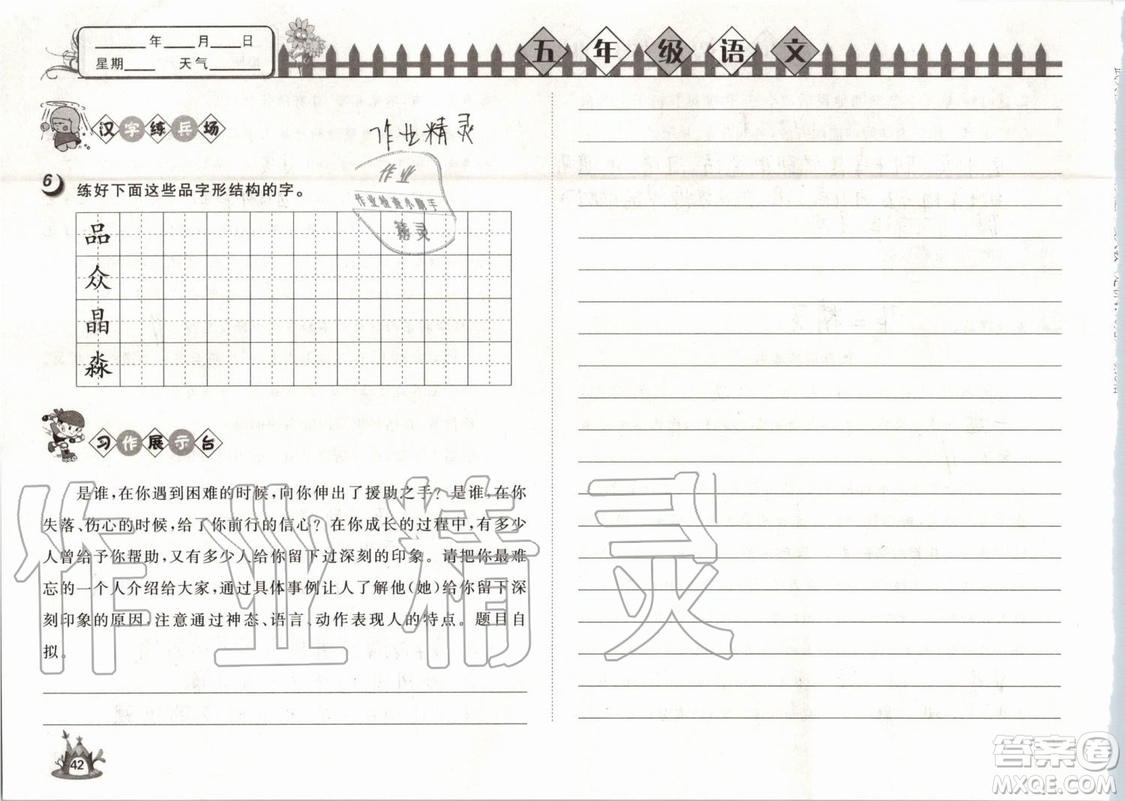 ____年____月____日
星期____ 天气____
五年级语文
汉字练兵场
作业精灵
作业
作业检查小助手
精灵
6 练好下面这些品字形结构的字。
品
众
晶
淼
习作展示台
是谁，在你遇到困难的时候，向你伸出了援助之手？是谁，在你
失落、伤心的时候，给了你前行的信心？在你成长的过程中，有多少
人曾给予你帮助，又有多少人给你留下过深刻的印象。请把你最难
忘的一个人介绍给大家，通过具体事例让人了解他（她）给你留下深
刻印象的原因，注意通过神态、语言、动作表现人的特点。题目自
拟。
作业精灵
42
答案圈
MXQE.COM